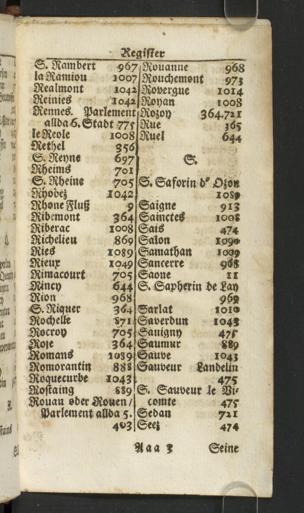 Register
S. Rambert 967
la Ramiou 1007
Realmont 1042
Reinies 1042
Rennes. Parlement
allda 6. Stadt 775
le Reole 1008
Rethel 356
S. Reyne 697
Rheims 701
S. Rheine 705
Rhodez 1042
Rhone Fluß 9
Ribemont 364
Riberac 1008
Richelieu 869
Ries 1089
Rieux 1049
Rimacourt 705
Rincy 644
Rion 968
S. Riquer 364
Rochelle 871
Rocroy 705
Roje 364
Romans 1089
Romorantin 888
Roquecurbe 1043
Rostaing 889
Rouan oder Rouen/
Parlement allda 5.
403
Rouanne 968
Rouchemont 973
Rovergue 1014
Royan 1008
Rozoy 364.721
Rue 365
Ruel 644
S.
S. Saforin d' Ozon
1089
Saigne 913
Sainctes 1008
Sais 474
Salon 1090
Samathan 1009
Sancerre 968
Saone 11
S. Sapherin de Lay
969
Sarlat 1010
Saverdun 1043
Savigny 475
Saumur 889
Sauve 1043
Sauveur Landelin
475
S. Sauveur le Vi-
comte 475
Sedan 721
Seez 474
Aaa 3 Seine